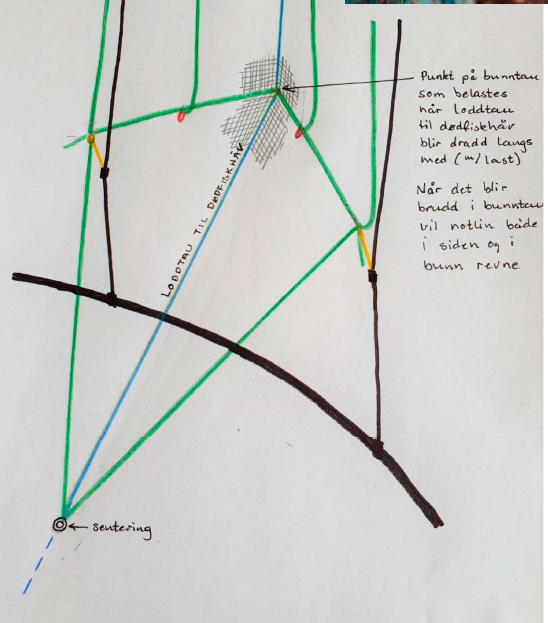 Punkt på bunntau
som belastes
når loddtau
til dødfiskhåv
blir dradd langs
med (m/last)
Når det blir
brudd i bunntau
vil notlin både
i siden og i
bunn revne
LODDTAU TIL DØDFISKHÅV
sentering